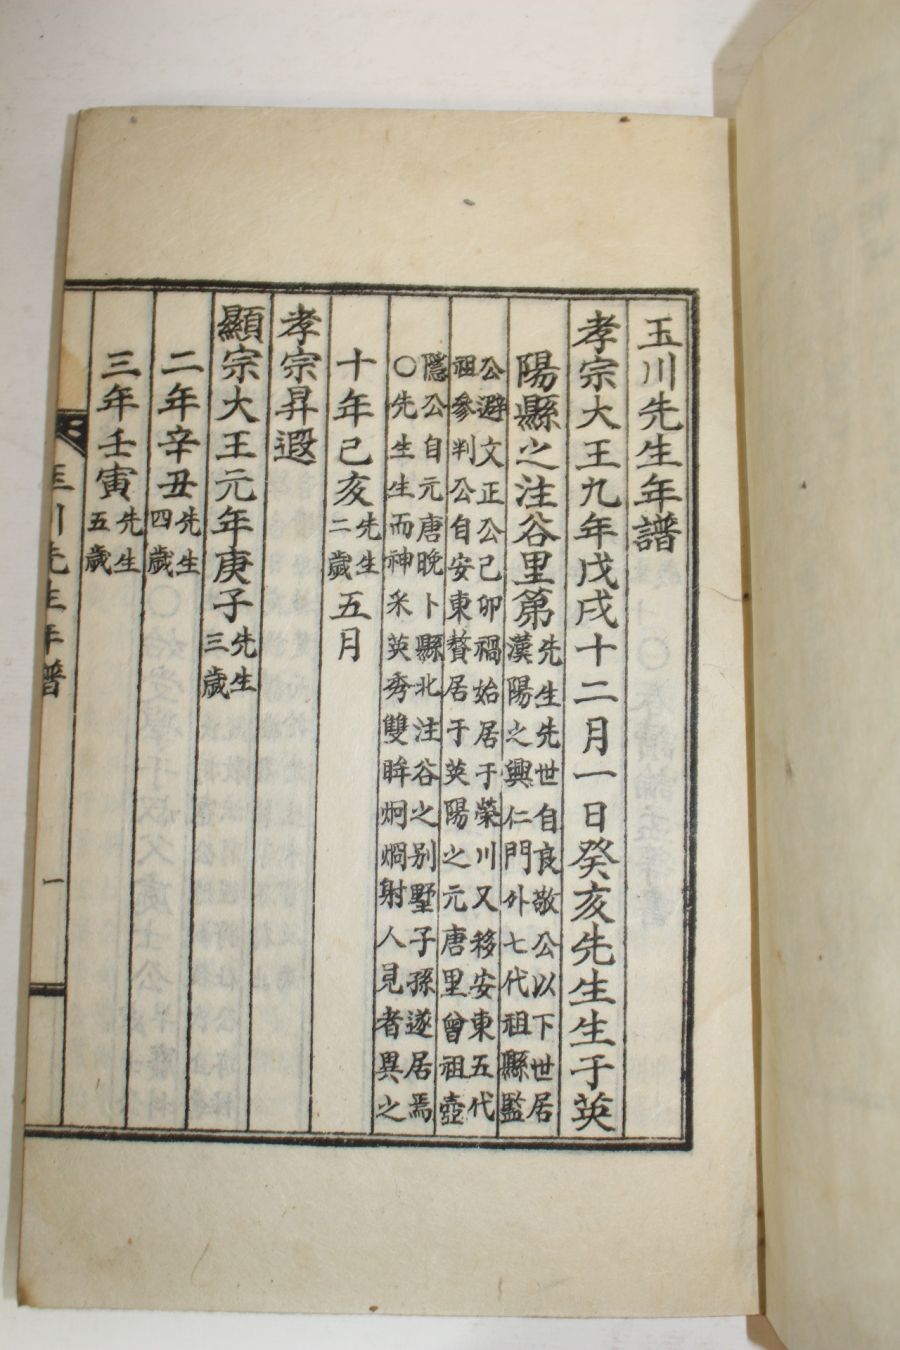 玉川先生年譜
孝宗大王九年戊戌十二月一日癸亥先生生于英
陽縣之注谷里第
先生先世自良敬公以下世居
漢陽之興仁門外七代祖縣監
公避文正公己卯禍始居于榮川又移安東五代
祖參判公自安東贅居于英陽之元唐里曾祖壺
隱公自元唐晩卜縣北注谷之別墅子孫遂居焉
○先生生而神采英秀雙眸炯炯射人見者異之
十年己亥先生二歲五月
孝宗昇遐
顯宗大王元年庚子先生三歲
二年辛丑先生四歲
三年壬寅先生五歲
玉川先生年譜
一